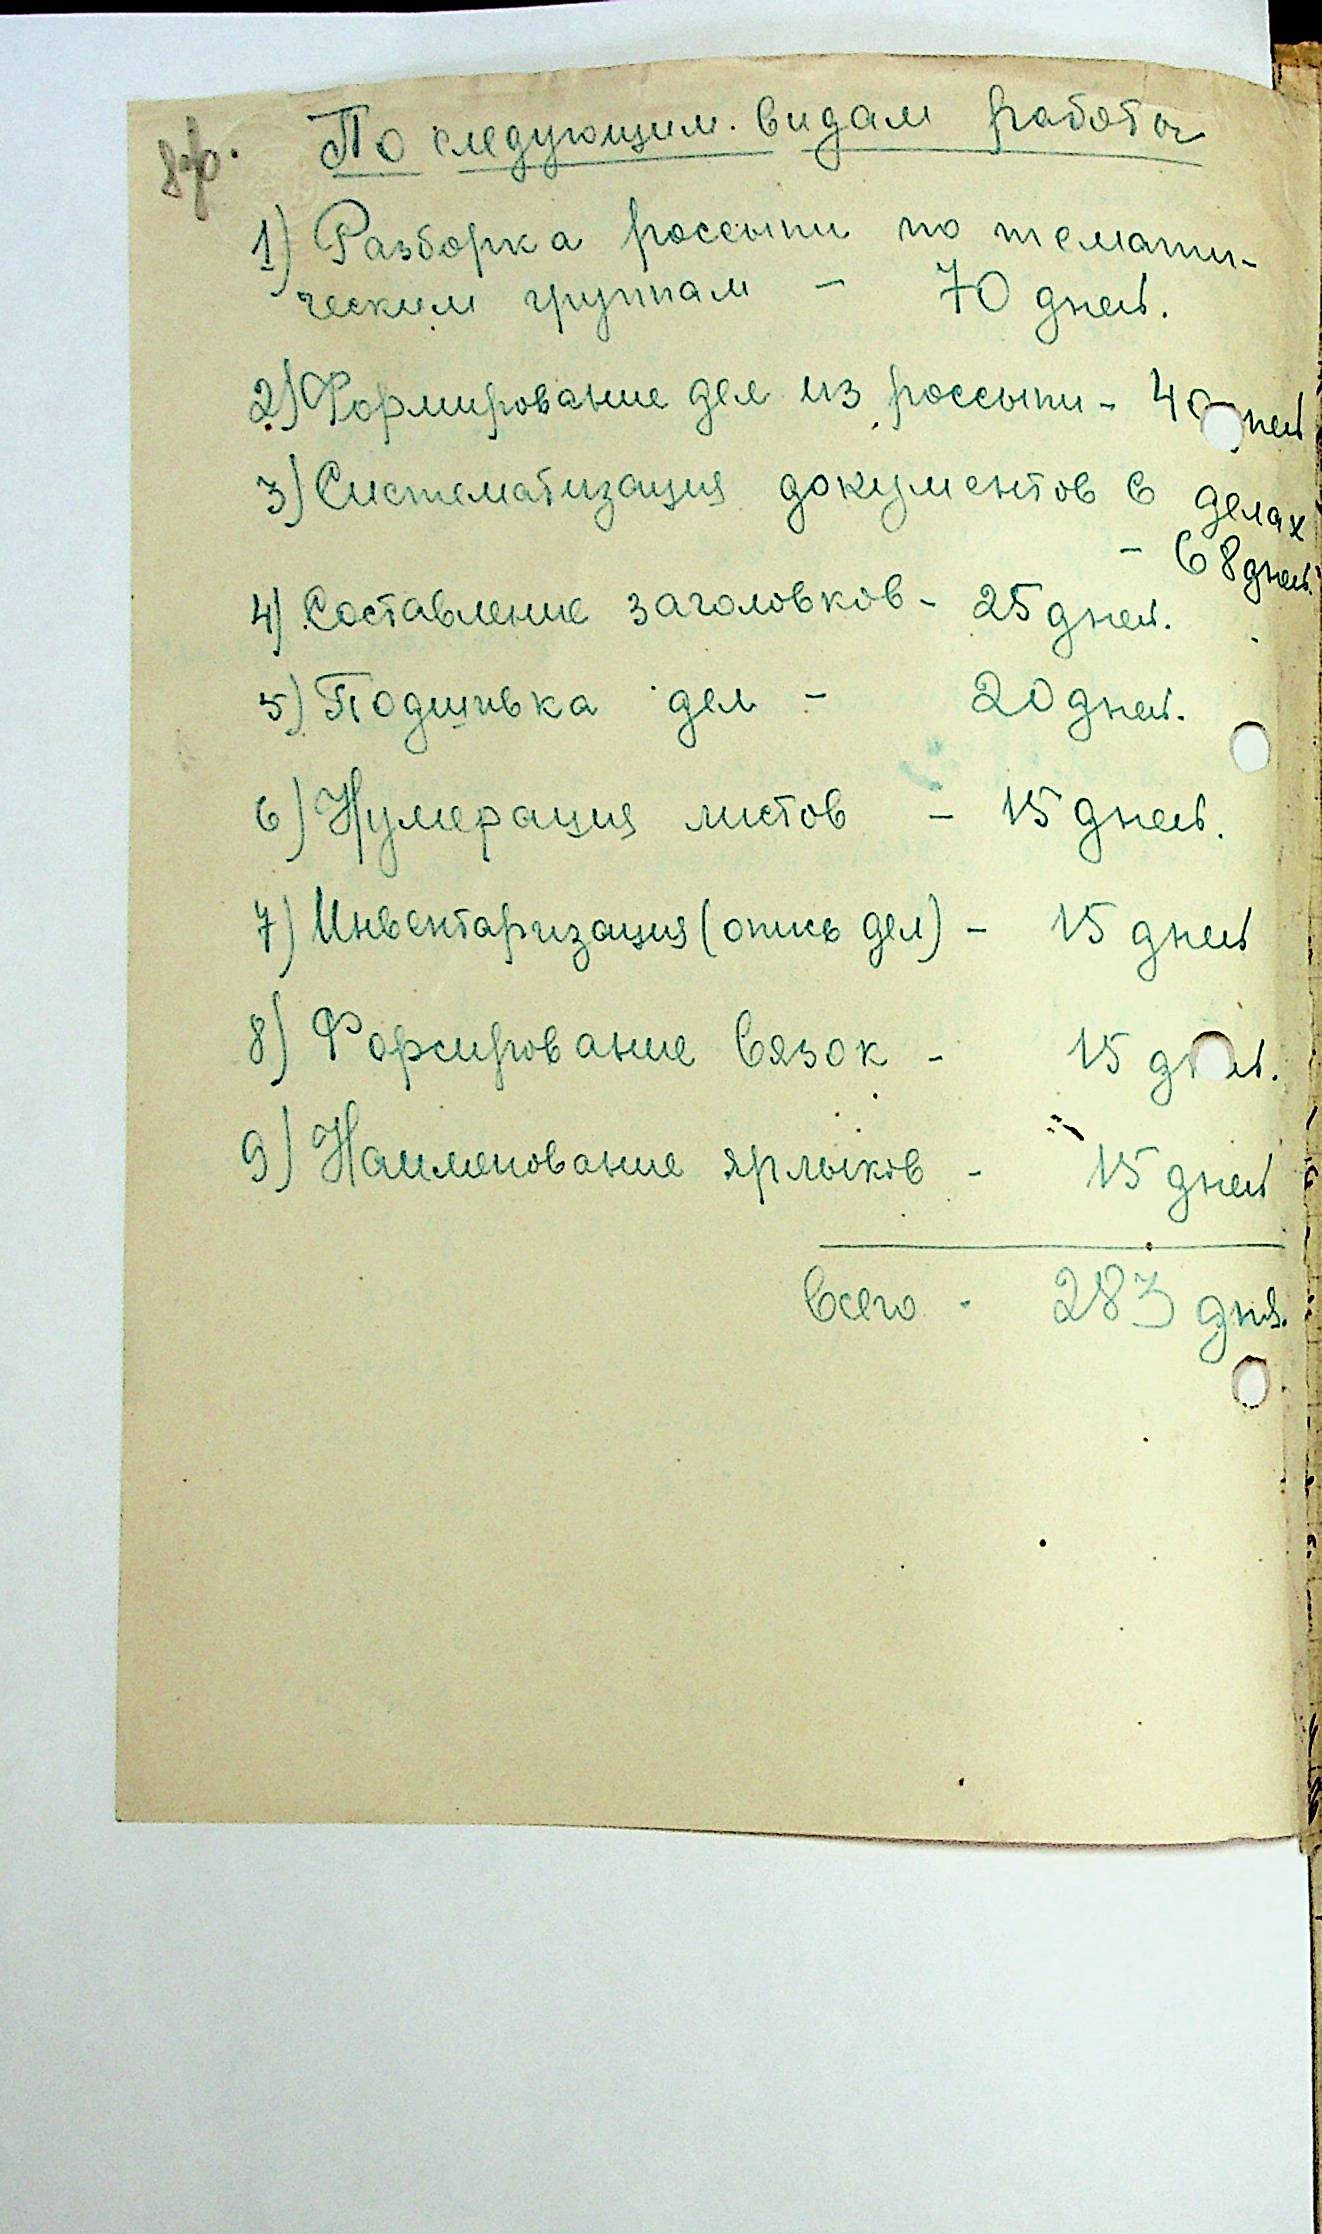 8об.
По следующим видам работы
1) Разборка россыпи по темати-
ческим группам - 70 дней.
2) Формирование дел из россыпи - 40 дней
3) Систематизация документов в делах
- 68 дней.
4) Составление заголовков - 25 дней.
5) Подшивка дел - 20 дней.
6) Нумерация листов - 15 дней.
7) Инвентаризация (опись дел) - 15 дней
8) Формирование вязок - 15 дней.
9) Наименование ярлыков - 15 дней
Всего - 283 дня.